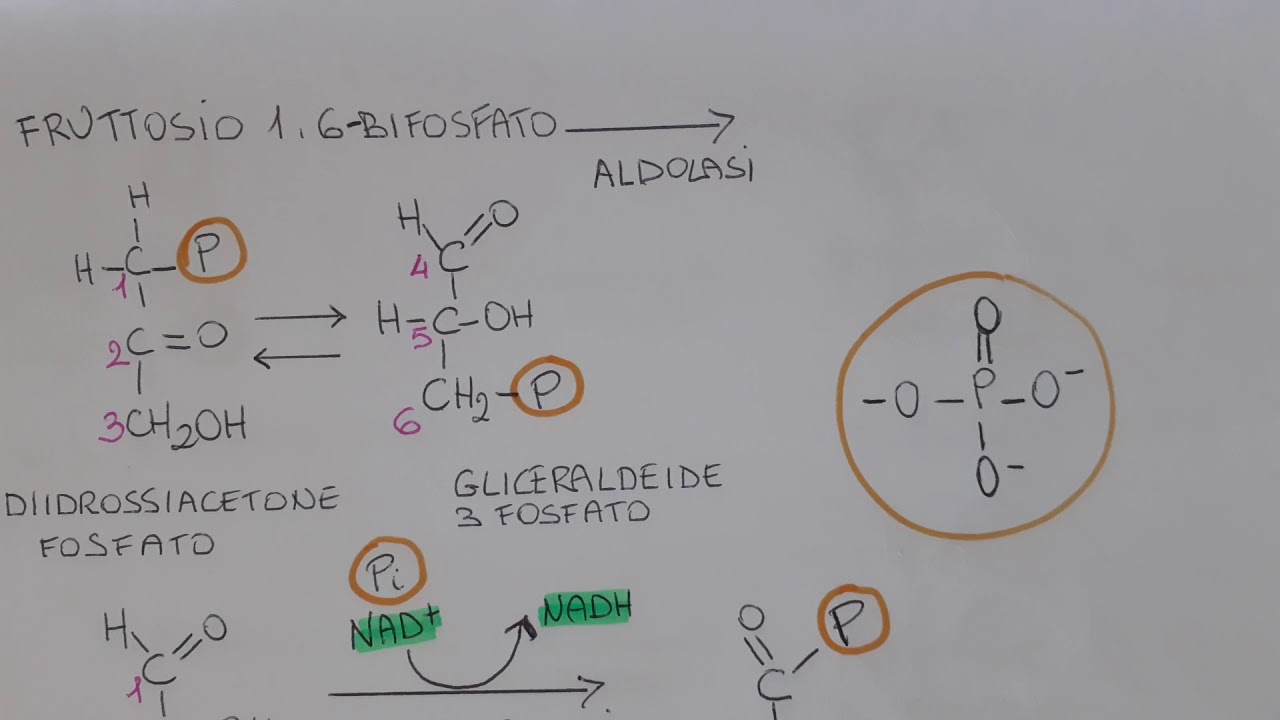 FRUTTOSIO 1.6-BIFOSFATO
ALDOLASI
H
H-C-P
1
2C=O
3CH2OH
H O
4 C
H-C-OH
5
CH2-P
6
O
-O-P-O-
O-
DIIDROSSIACETONE
FOSFATO
GLICERALDEIDE
3 FOSFATO
Pi
NAD+
NADH
H O
1 C
O P
C